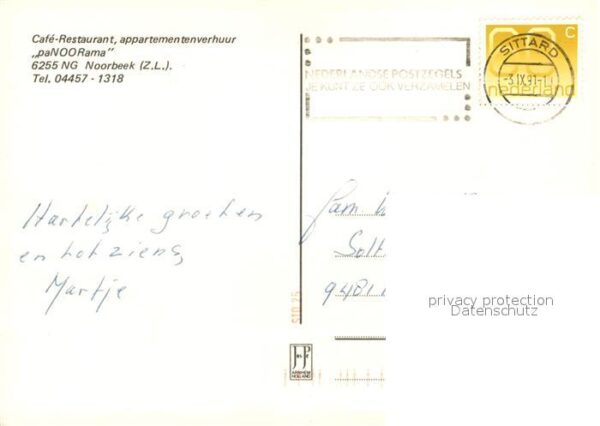 Café-Restaurant, appartementenverhuur
„paNOORama"
6255 NG Noorbeek (Z.L.).
Tel. 04457 - 1318
SITTARD
-3.IX.91-1
C
nederland
NEDERLANDSE POSTZEGELS
JE KUNT ZE OOK VERZAMELEN
Hartelijke groeten
en tot ziens,
Martje
Fam
Solt
9481
privacy protection
Datenschutz
510 25
JosPé
ARNHEM
HOLLAND